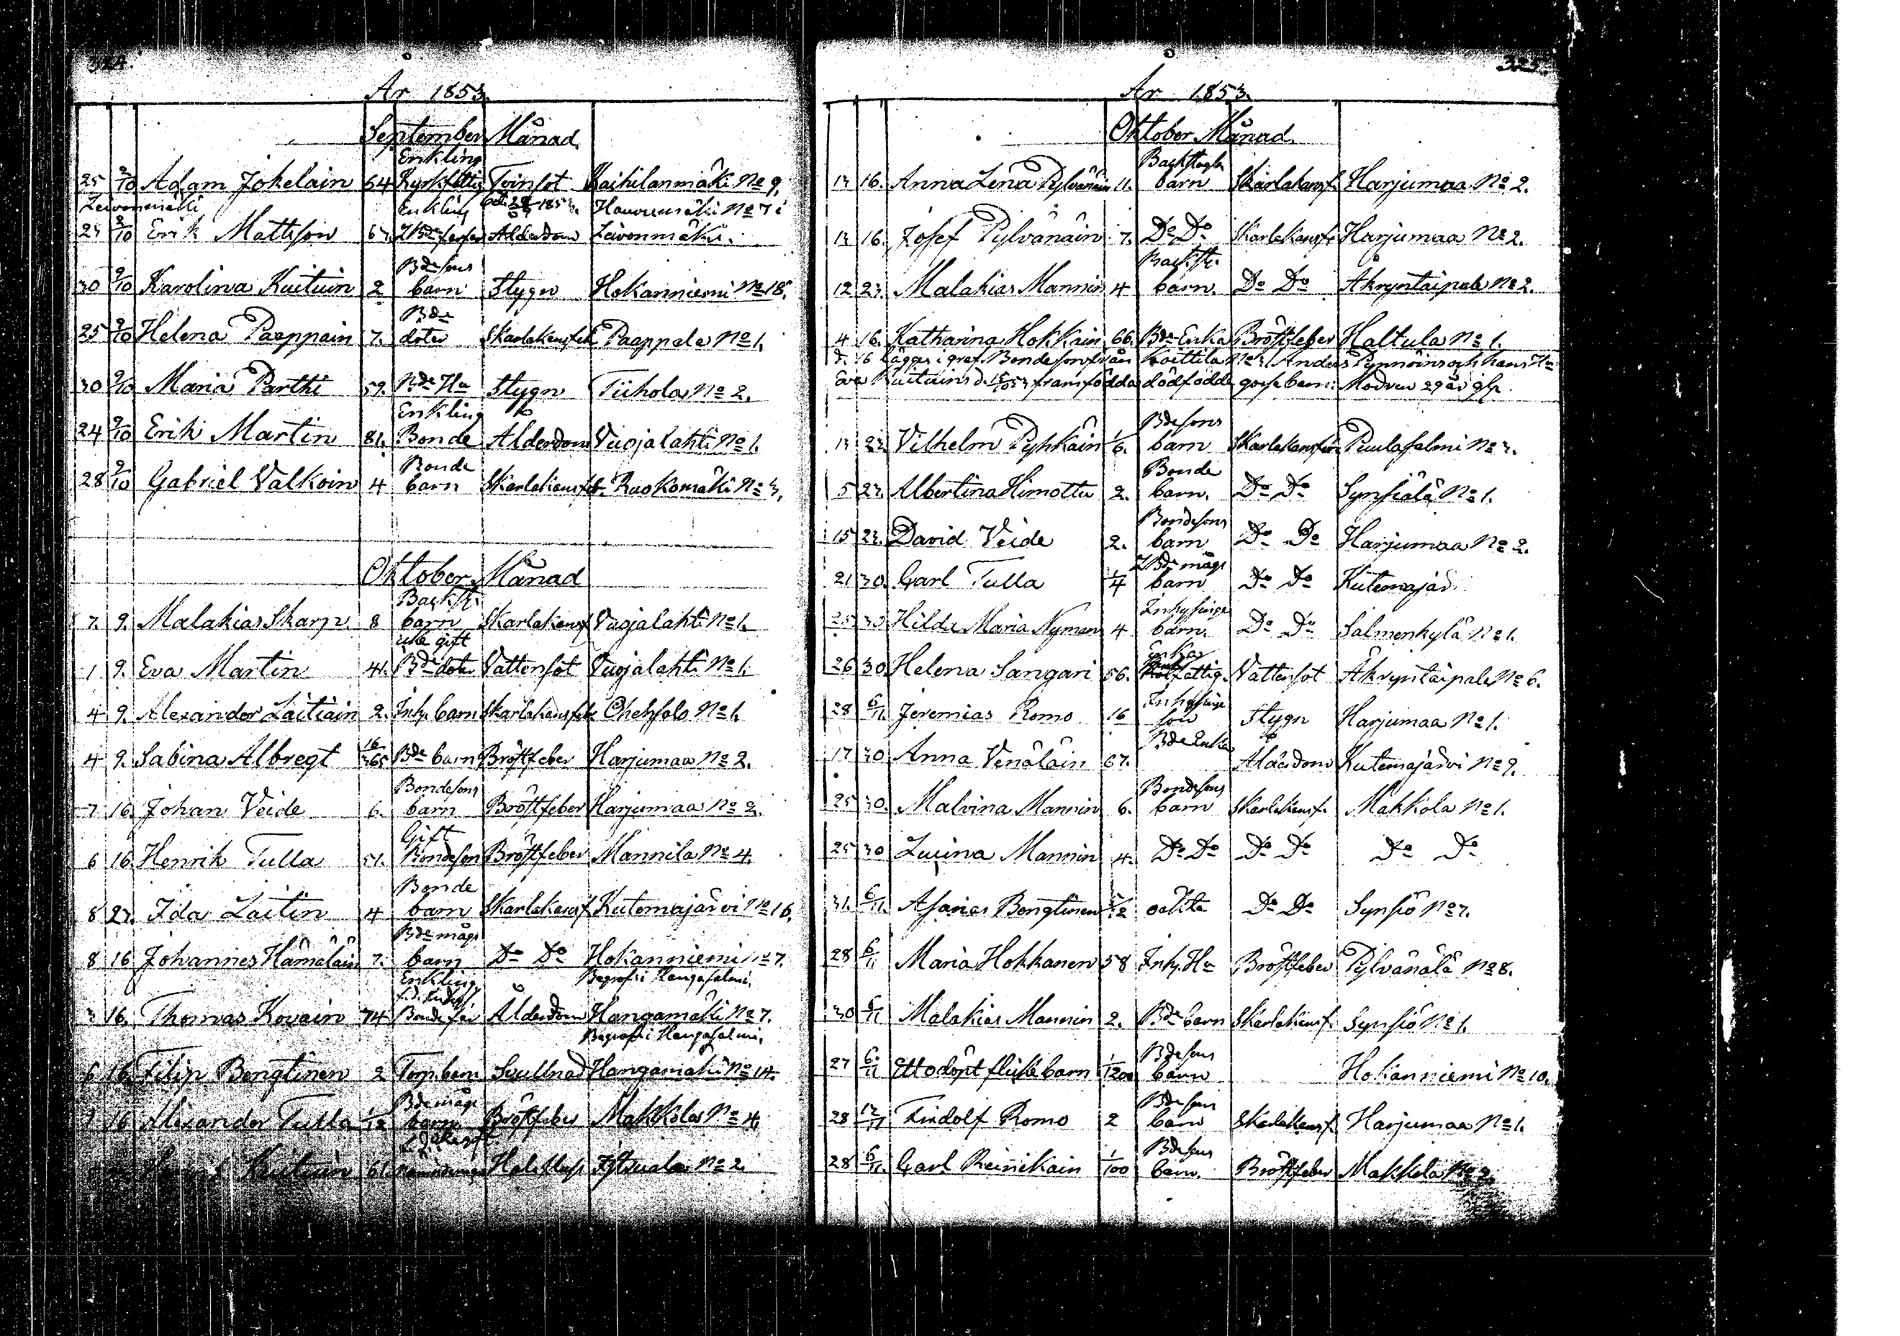 324.
År 1853.
September Månad
Enkling
25 2/10 Adam Jokelain 64 Kyrkfattig Tvinsot Kaihilanmäki No 9.
Leivonmäki Enkling Hanvuomäki No 7
23 2/10 Erik Mattson Alderdom Leivonmäki.
Bdesons
30 2/10 Karolina Kuituin 2 barn Stygn Hokanniemi No 18.
Bde
25 2/10 Helena Paappain 7. doter Skarlakensfeb Paappala No 1.
30 2/10 Maria Parthi 59. Bde Hu Stygn Tiihola No 2.
Enkling
24 2/10 Erik Martin 81. Bonde Alderdom Vuojalahti No 1.
Bonde
28 2/10 Gabriel Valkoin 4 barn Skarlakensfeb. Ruokomäki No 3.
Oktober Månad
Backst.
7. 9. Malakias Skarp 8 barn Skarlakensf Vuojalahti No 1.
icke gift
1 9. Eva Martin 41. Bde dote Vattensot Vuojalahti No 1.
4 9. Alexander Laitiain 2. Inh. barn Skarlakensfeb Ohensalo No 1.
4 9. Sabina Albregt 16/365 Bde barn Bröstfeber Harjumaa No 2.
Bondesons
7 16. Johan Veide 6. barn Bröstfeber Harjumaa No 2.
Gift
6 16. Henrik Tulla 51. Bondeson Bröstfeber Mannila No 4.
Bonde
8 23. Ida Laitin 4 barn Skarlakensf Kutemajärvi No 16.
Bde mågs
8 16 Johannes Hämäläin 7. barn Do Do Hokanniemi No 7.
Enkling Begrafs i Hangasalmi.
3 16. Thomas Kovain 74 Bondefar Ålderdom Hangamäki No 7.
Begrafs i Hangasalmi.
6 16. Filip Bengtinen 2 Torp. barn Svullnad Hangamäki No 14.
Bde mågs
16 Alexander Tulla 1/12 barn Bröstfeber Makkola No 4
Kuituin 61. Halsfluss No 2
År 1853.
Oktober Månad
Backstugu
13 16. Anna Lena Pylvänäin 11. barn Skarlakensf. Harjumaa No 2.
13 16. Josef Pylvänäin 7. Do Do Skarlakensf. Harjumaa No 2.
Backst.
12 23. Malakias Mannin 4 barn. Do Do Åkryntaipale No 2.
4 16. Katharina Hokkain 66. Bde Enka Bröstfeber Haltula No 1.
d. 16 lägges i graf. Bondeson från Koittila No Anders Pynnöin och hans Hu
Eva Kuituins d. framfödda dödfödde gossebarn. Modren 29 år g.
Bdesons
13 23. Vilhelm Pyhkäin 1/6. barn Skarlakensfeb Puulasalmi No 3.
Bonde
5 23. Albertina Himottu 2. barn. Do Do Synsiälä No 1.
Bondesons
15 23. David Veide 2. barn Do Do Harjumaa No 2.
Bde mågs
21 30. Carl Tulla 1/4 barn Do Do Kutemajär.
Inhysings
25 30 Hilda Maria Nyman 4 barn. Do Do Salmenkylä No 1.
Enka
26 30 Helena Sangari 56. fattig. Vattensot Åkryntaipale No 6.
Inhysings
28 6/11. Jeremias Romo 16 son Stygn Harjumaa No 1.
Bde Enka
17 30 Anna Venäläin 67. Alderdom Kutemajärvi No 9.
Bondesons
25 30. Malvina Mannin 6. barn Skarlakensf. Makkola No 1.
25 30 Lucina Mannin 4. Do Do Do Do Do Do
31. 6/11. Asarias Bengtinen oäkta Do Do Synsiö No 7.
28 6/11 Maria Hokkanen 58 Inh. Hu Bröstfeber Pylvänälä No 8.
30 6/11 Malakias Mannin 2. Bde barn Skarlakensf. Synsiö No 1.
Bdesons
27 6/11 Ett odöpt flickebarn 1/1200 barn Hokanniemi No 10.
Bdesons
28 12/11 Findolf Romo 2 barn Skarlakensf. Harjumaa No 1.
Bdesons
28 6/11. Carl Reinikain 1/100 barn. Bröstfeber Makkola